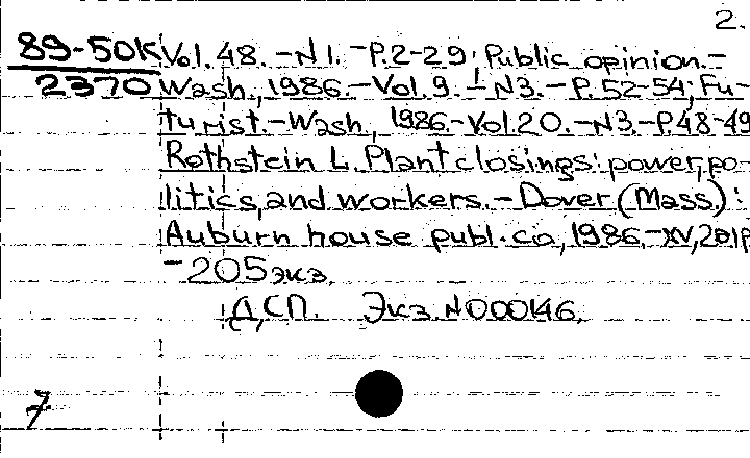 2.
89-50К Vol. 48. - N 1. - P. 2-29; Public opinion. -
2370 Wash., 1986. - Vol. 9. - N3. - P. 52-54; Fu-
turist. - Wash., 1986. - Vol. 20. - N3. - P. 48-49
Rothstein L. Plant closings: power, po-
litics, and workers. - Dover (Mass.):
Auburn house publ. co, 1986. - XV, 201p
- 205 экз.
ДСП. Экз. N 000146.
7